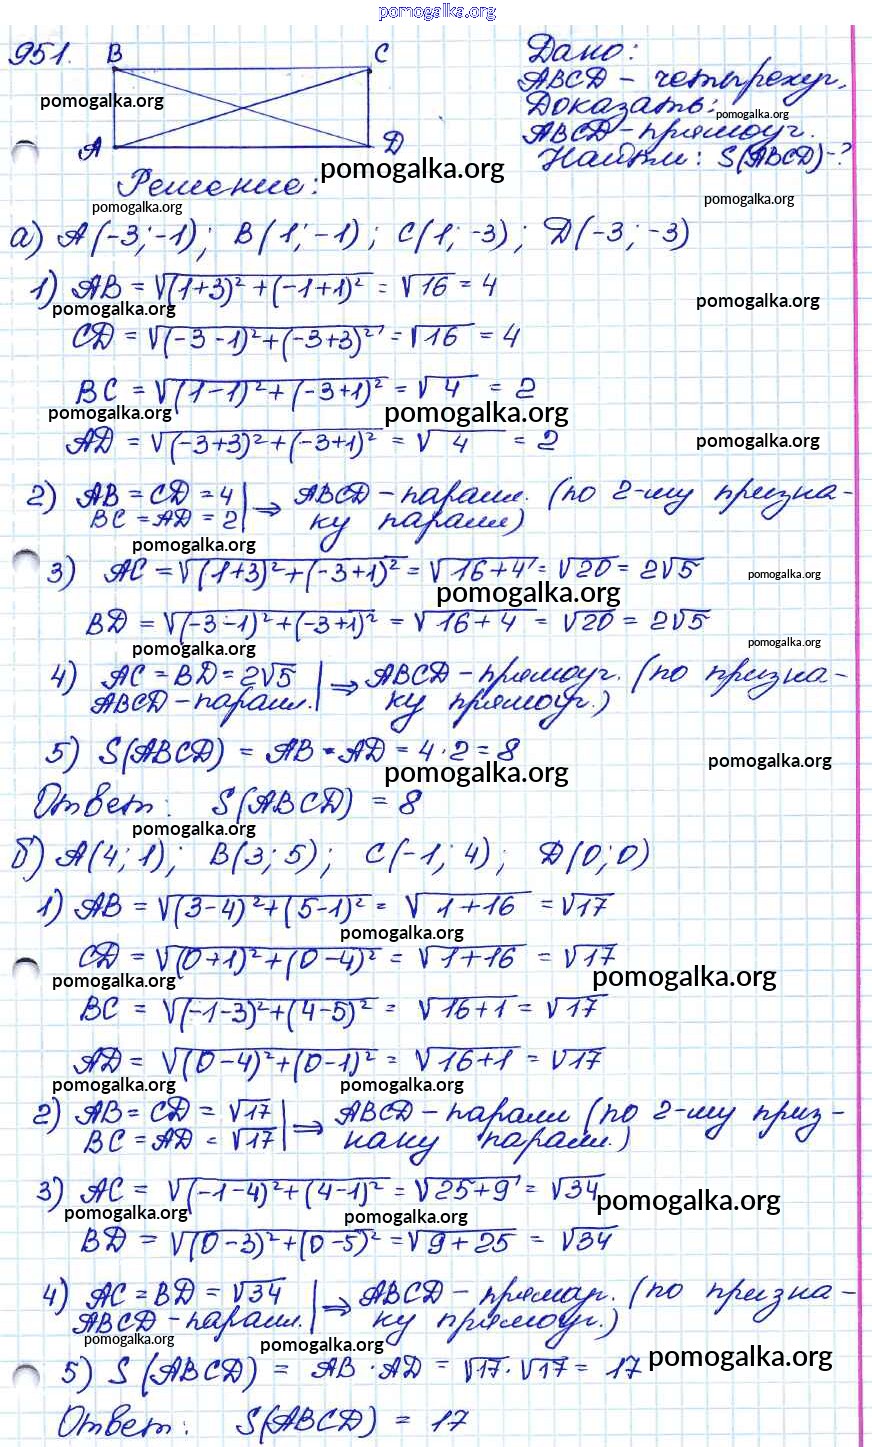 pomogalka.org
951. B C
A D
Дано:
ABCD – четырехуг.
Доказать:
ABCD – прямоуг.
Найти: S(ABCD) – ?
pomogalka.org
pomogalka.org
pomogalka.org
Решение:
pomogalka.org
pomogalka.org
а) A(-3;-1); B(1;-1); C(1;-3); D(-3;-3)
1) AB = √(1+3)²+(-1+1)² = √16 = 4
pomogalka.org
pomogalka.org
CD = √(-3-1)²+(-3+3)² = √16 = 4
BC = √(1-1)²+(-3+1)² = √4 = 2
pomogalka.org
pomogalka.org
AD = √(-3+3)²+(-3+1)² = √4 = 2
pomogalka.org
2) AB = CD = 4 | ⇒ ABCD – паралл. (по 2-му призна-
BC = AD = 2 | ку паралл)
pomogalka.org
3) AC = √(1+3)²+(-3+1)² = √16+4 = √20 = 2√5
pomogalka.org
pomogalka.org
BD = √(-3-1)²+(-3+1)² = √16+4 = √20 = 2√5
pomogalka.org
pomogalka.org
4) AC = BD = 2√5 | ⇒ ABCD – прямоуг. (по призна-
ABCD – паралл. | ку прямоуг.)
5) S(ABCD) = AB · AD = 4 · 2 = 8
pomogalka.org
pomogalka.org
Ответ: S(ABCD) = 8
pomogalka.org
б) A(4;1); B(3;5); C(-1;4); D(0;0)
1) AB = √(3-4)²+(5-1)² = √1+16 = √17
pomogalka.org
CD = √(0+1)²+(0-4)² = √1+16 = √17
pomogalka.org
pomogalka.org
BC = √(-1-3)²+(4-5)² = √16+1 = √17
AD = √(0-4)²+(0-1)² = √16+1 = √17
pomogalka.org
pomogalka.org
2) AB = CD = √17 | ⇒ ABCD – паралл (по 2-му приз-
BC = AD = √17 | наку паралл.)
3) AC = √(-1-4)²+(4-1)² = √25+9 = √34
pomogalka.org
pomogalka.org
pomogalka.org
BD = √(0-3)²+(0-5)² = √9+25 = √34
4) AC = BD = √34 | ⇒ ABCD – прямоуг. (по призна-
ABCD – паралл. | ку прямоуг.)
pomogalka.org
pomogalka.org
pomogalka.org
5) S(ABCD) = AB · AD = √17 · √17 = 17
Ответ: S(ABCD) = 17